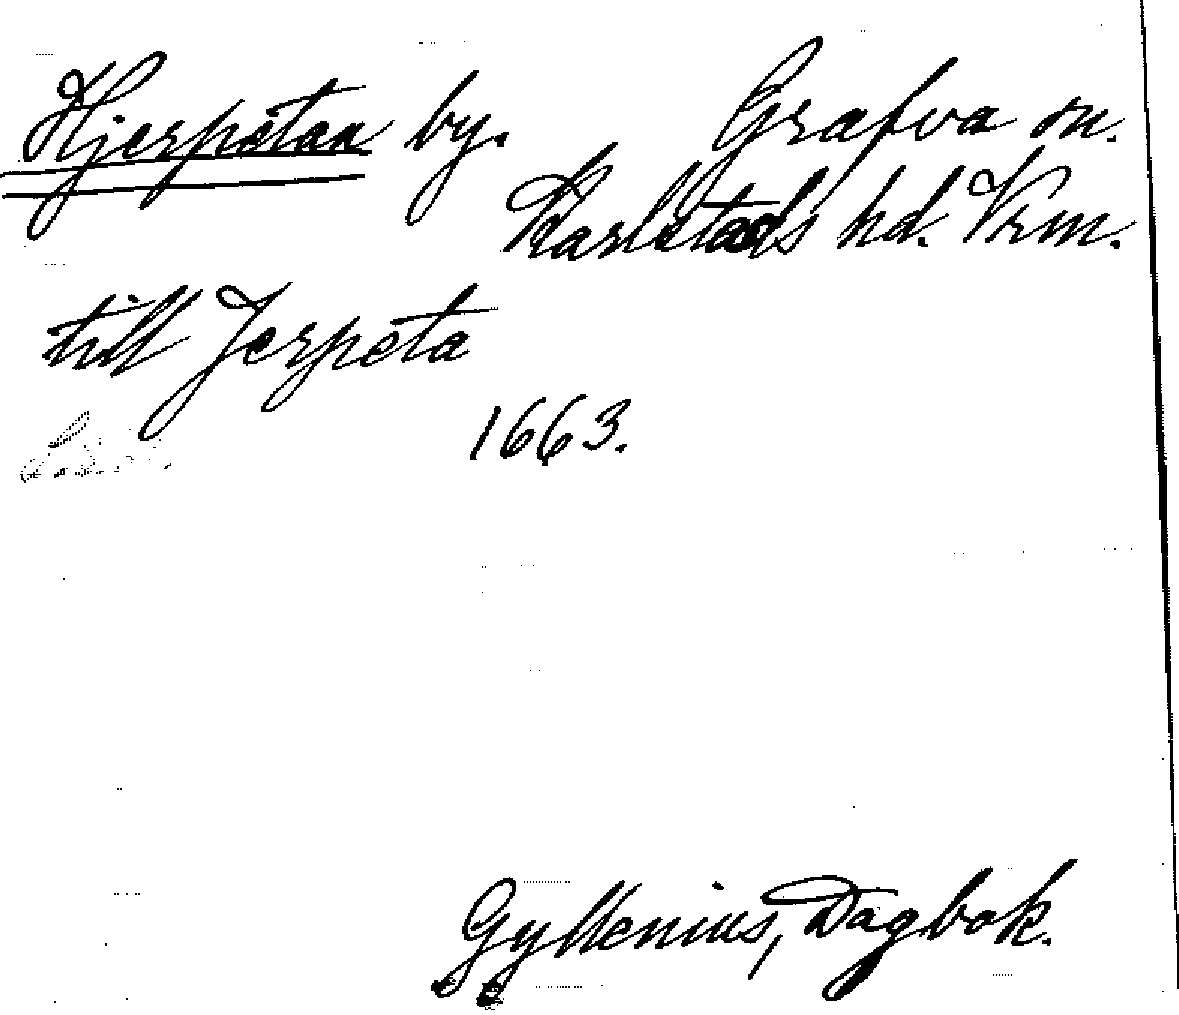 Hjerpetan by. Grafva sn.
Karlstads hd. Vrm.
till Jerpeta
1663.
Gyllenius, Dagbok.